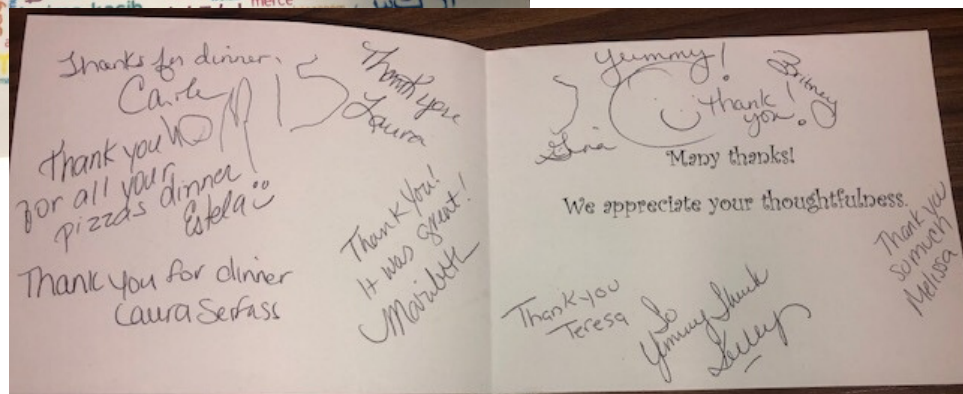 merce
Thanks for dinner.
Carla
Thank you
for all your
pizzas dinner!
Estela
Thank you for dinner
Laura Serfass
Thank you
Laura
Thank you!
It was great!
Maribeth
Yummy!
Gina
Thank
you!
Britney
Many thanks!
We appreciate your thoughtfulness.
Thank you
Teresa
So
Yummy Thank
Kelley
Thank you
so much
Melissa